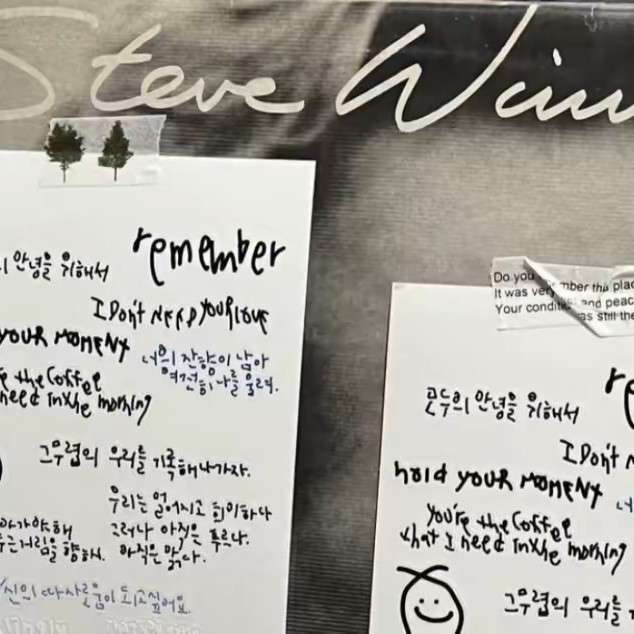 Steve Win
remember
안녕을 위해서
I DON'T NEED YOUR LOVE
YOUR MOMENT
너의 잔향이 남아
여전히 나를 울려.
the coffee
need in the morning
그무렵의 우리를 기록해나가자.
우리는 멀어지고 희미하다
그러나 아직은 푸르다.
아직은 맑다.
나아가야해
두근거림을 향해.
당신의 따사로움이 되고싶어요
Do you mber this plac
It was very
Your condit and peac
as still the
re
모두의 안녕을 위해서
I DON'T N
hold YOUR MOMENT
You're the coffee
that I need in the morning
그무렵의 우리를